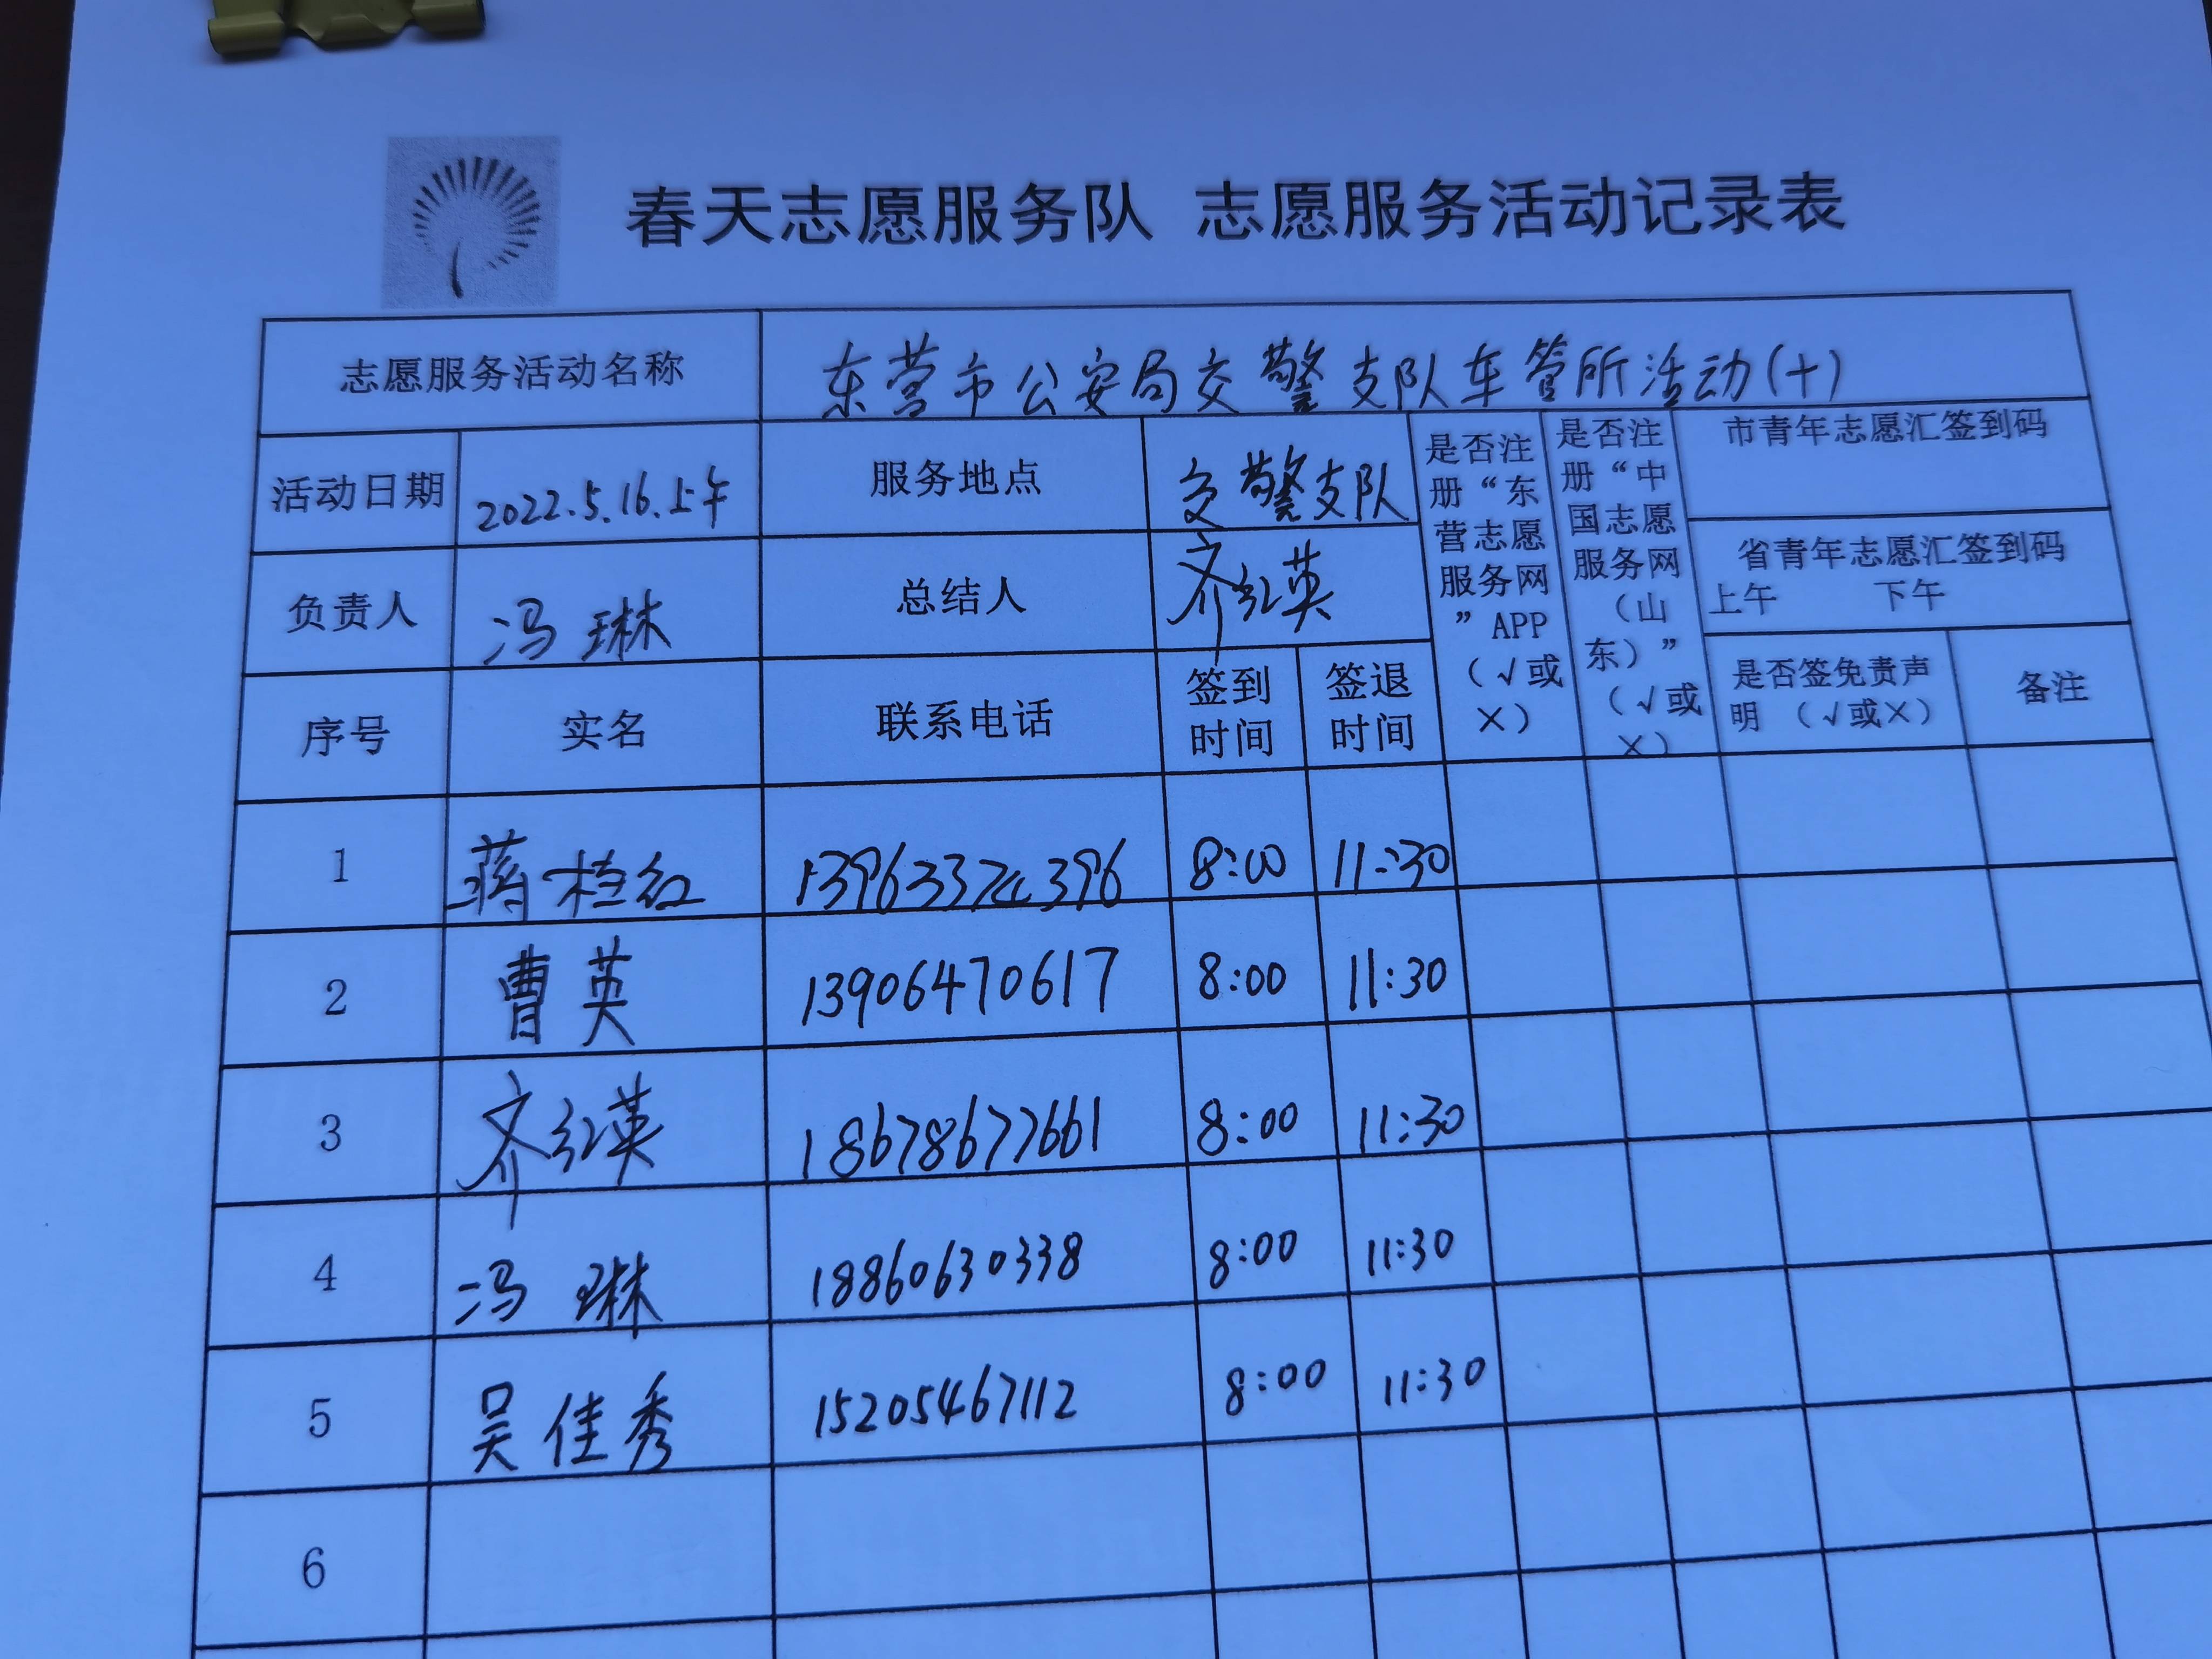 春天志愿服务队 志愿服务活动记录表
志愿服务活动名称 东营市公安局交警支队车管所活动(十)
活动日期 2022.5.16.上午 服务地点 交警支队
负责人 冯琳 总结人 齐红英
是否注册“东营志愿服务网”APP（√或×）
是否注册“中国志愿服务网（山东）”（√或×）
市青年志愿汇签到码
省青年志愿汇签到码
上午 下午
序号 实名 联系电话 签到时间 签退时间 是否签免责声明（√或×） 备注
1 蒋桂红 8:00 11:30
2 曹英 13906470617 8:00 11:30
3 齐红英 18678677661 8:00 11:30
4 冯琳 18860630338 8:00 11:30
5 吴佳秀 15205467112 8:00 11:30
6